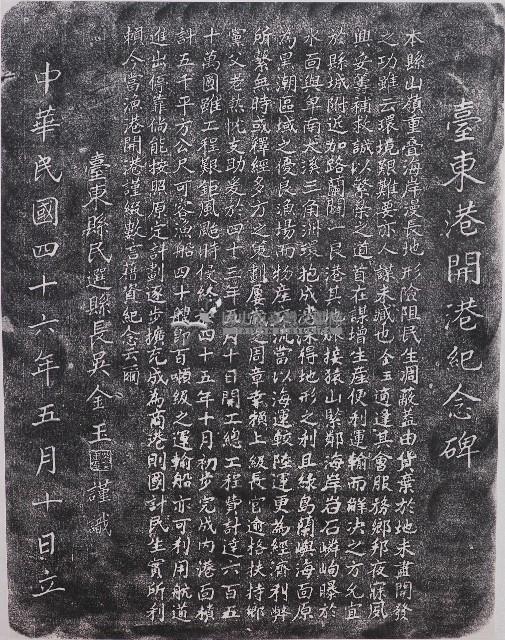 臺東港開港紀念碑
本縣山嶺重疊海岸漫長地形險阻民生凋敝蓋由貨棄於地未盡開發
之功雖云環境艱難要亦人謀未臧也金玉適逢其會服務鄉邦夜寐夙
興妥籌補救誠以繁榮之道首在謀增生產便利運輸而解決之方允宜
於縣城附近加路蘭闢一良港其地採接猿山緊鄰海岸岩石嶙峋曝於
水面與卑南大溪三角洲環抱成 深得地形之利且綠島蘭嶼海面原
為黑潮區域之優良漁場而物產 流當以海運較陸運更為經濟利弊
所繫無時或釋經多方之策劃屢 之周章幸賴上級長官逾格扶持鄉
黨父老熱忱支助爰於四十三年 月十日開工總工程費計達六百五
十萬國雖工程艱鉅風颱時侵終 四十五年十月初步完成內港面積
計五千平方公尺可容漁船四十艘即百噸級之運輸船亦可利用航道
進出停靠倘能按照原定計劃逐步擴充成為商港則國計民生實所利
賴人當漁港開港謹綴數言藉資紀念云爾
臺東縣民選縣長吳金玉謹識
中華民國四十六年五月十日立